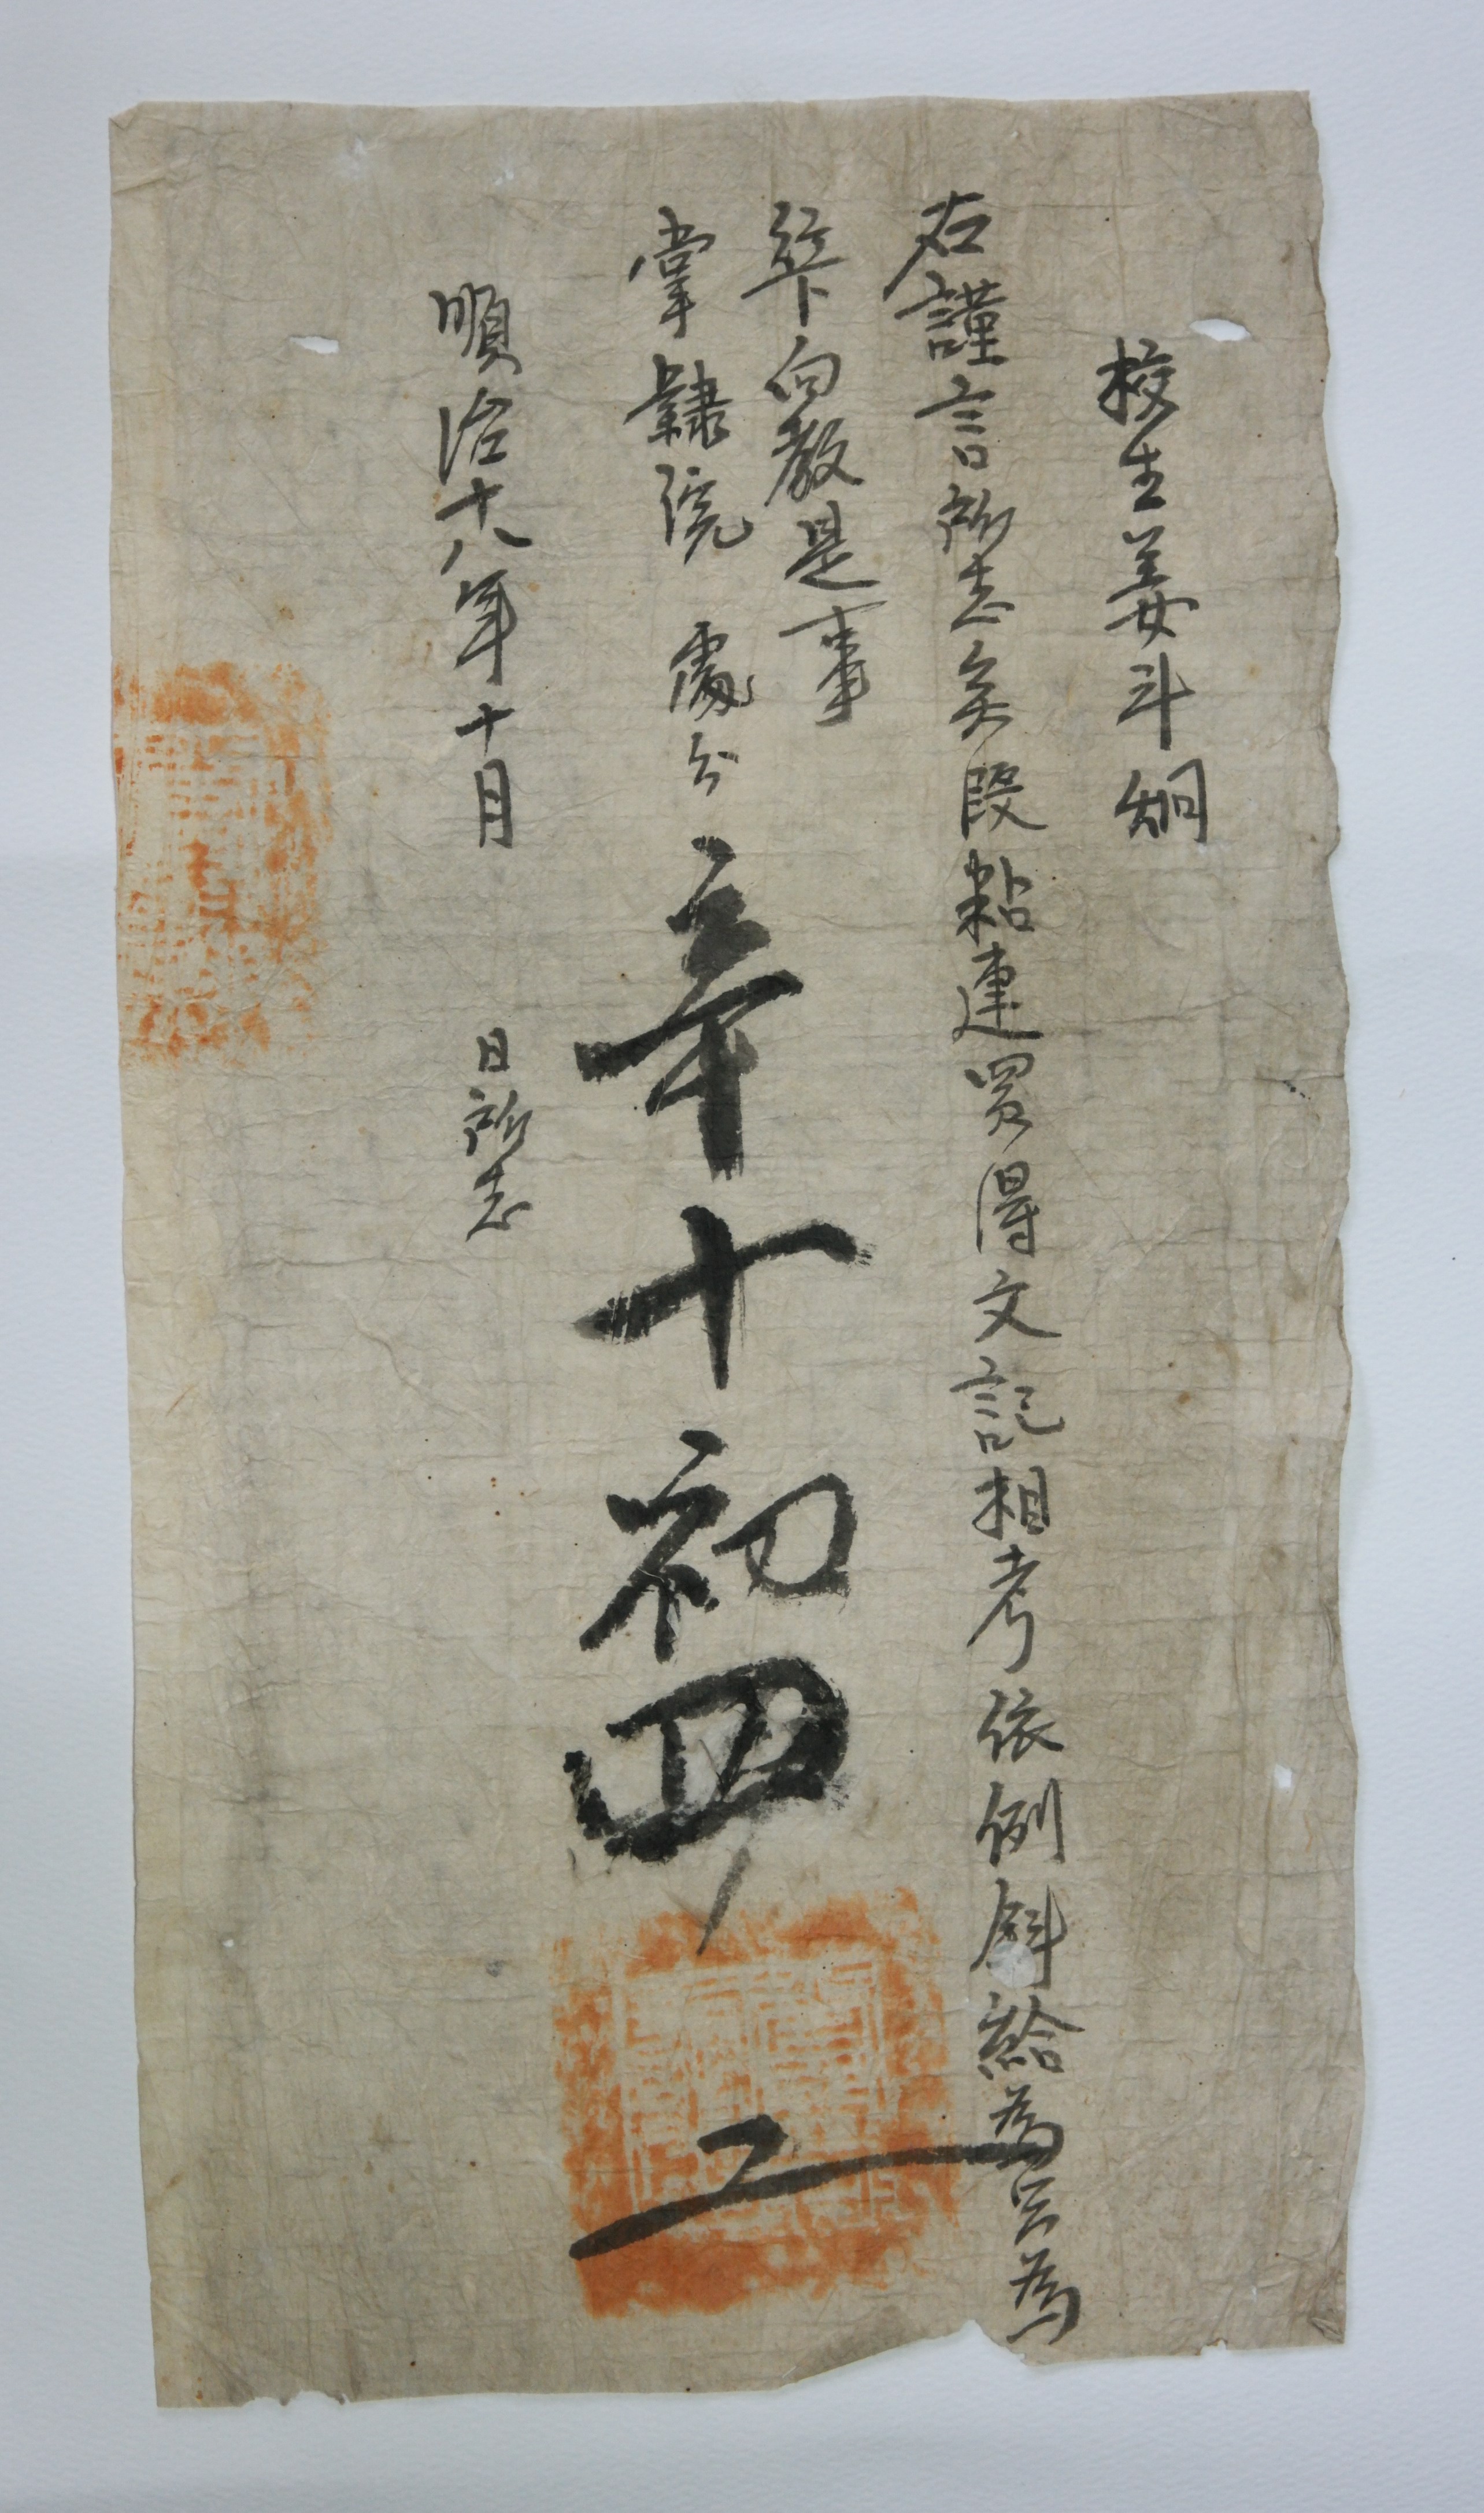 校生姜斗炯
右謹言所志矣段粘連買得文記相考依例斜給爲只爲
行下向敎是事
掌隷院 處分
辛十初四
順治十八年十月 日所志